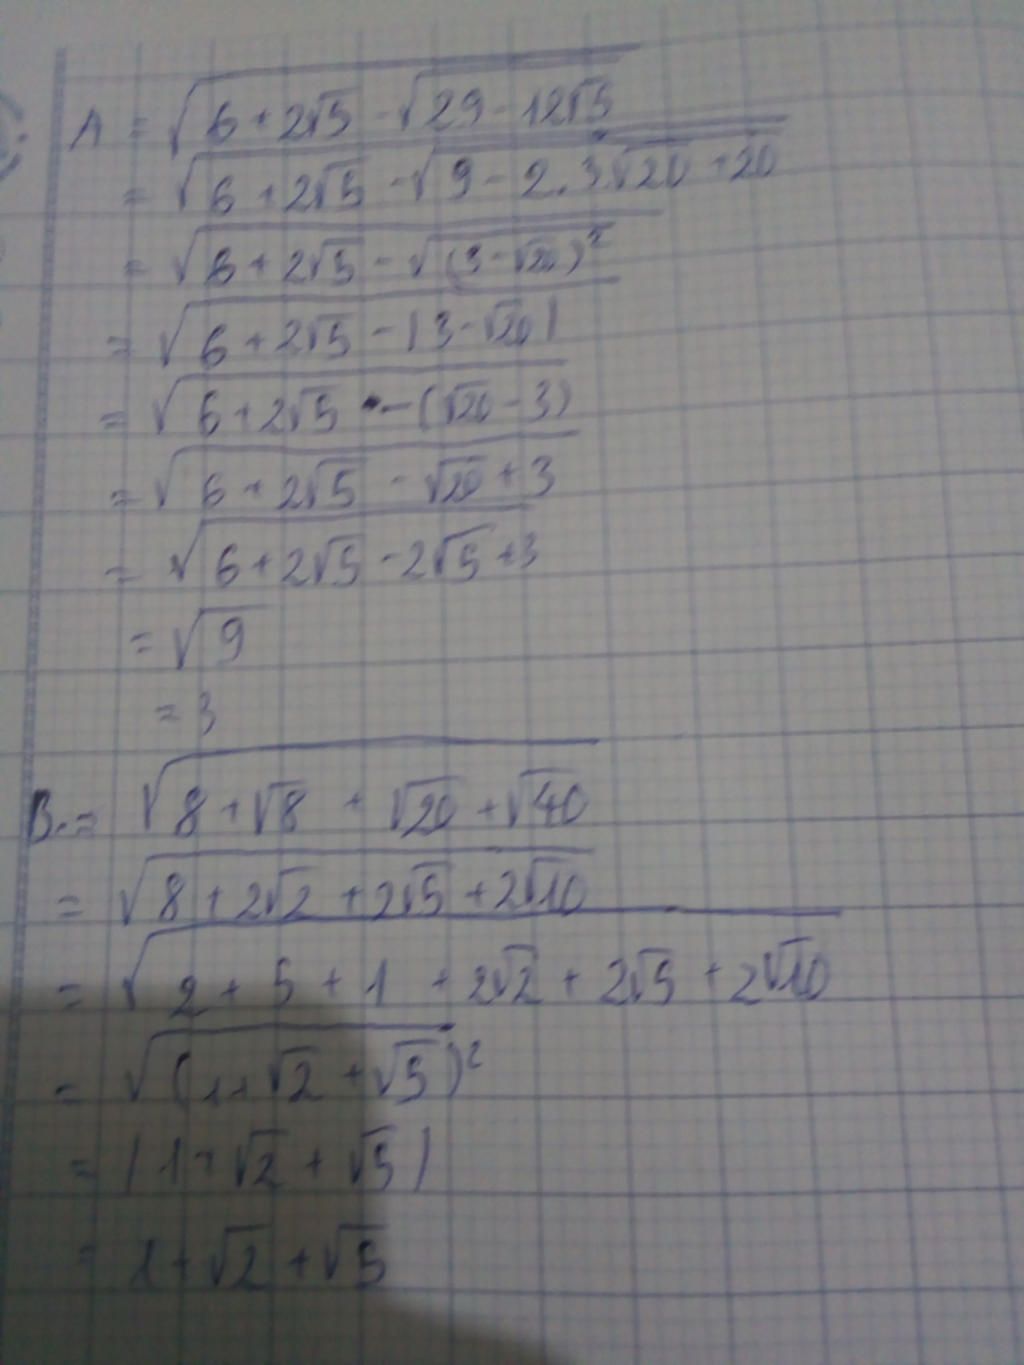 A = √(6 + 2√5 - √(29 - 12√5))
= √(6 + 2√5 - √(9 - 2.3.√20 + 20))
= √(6 + 2√5 - √((3 - √20)²))
= √(6 + 2√5 - |3 - √20|)
= √(6 + 2√5 - (√20 - 3))
= √(6 + 2√5 - √20 + 3)
= √(6 + 2√5 - 2√5 + 3)
= √9
= 3
B = √(8 + √8 + √20 + √40)
= √(8 + 2√2 + 2√5 + 2√10)
= √(2 + 5 + 1 + 2√2 + 2√5 + 2√10)
= √((1 + √2 + √5)²)
= |1 + √2 + √5|
= 1 + √2 + √5